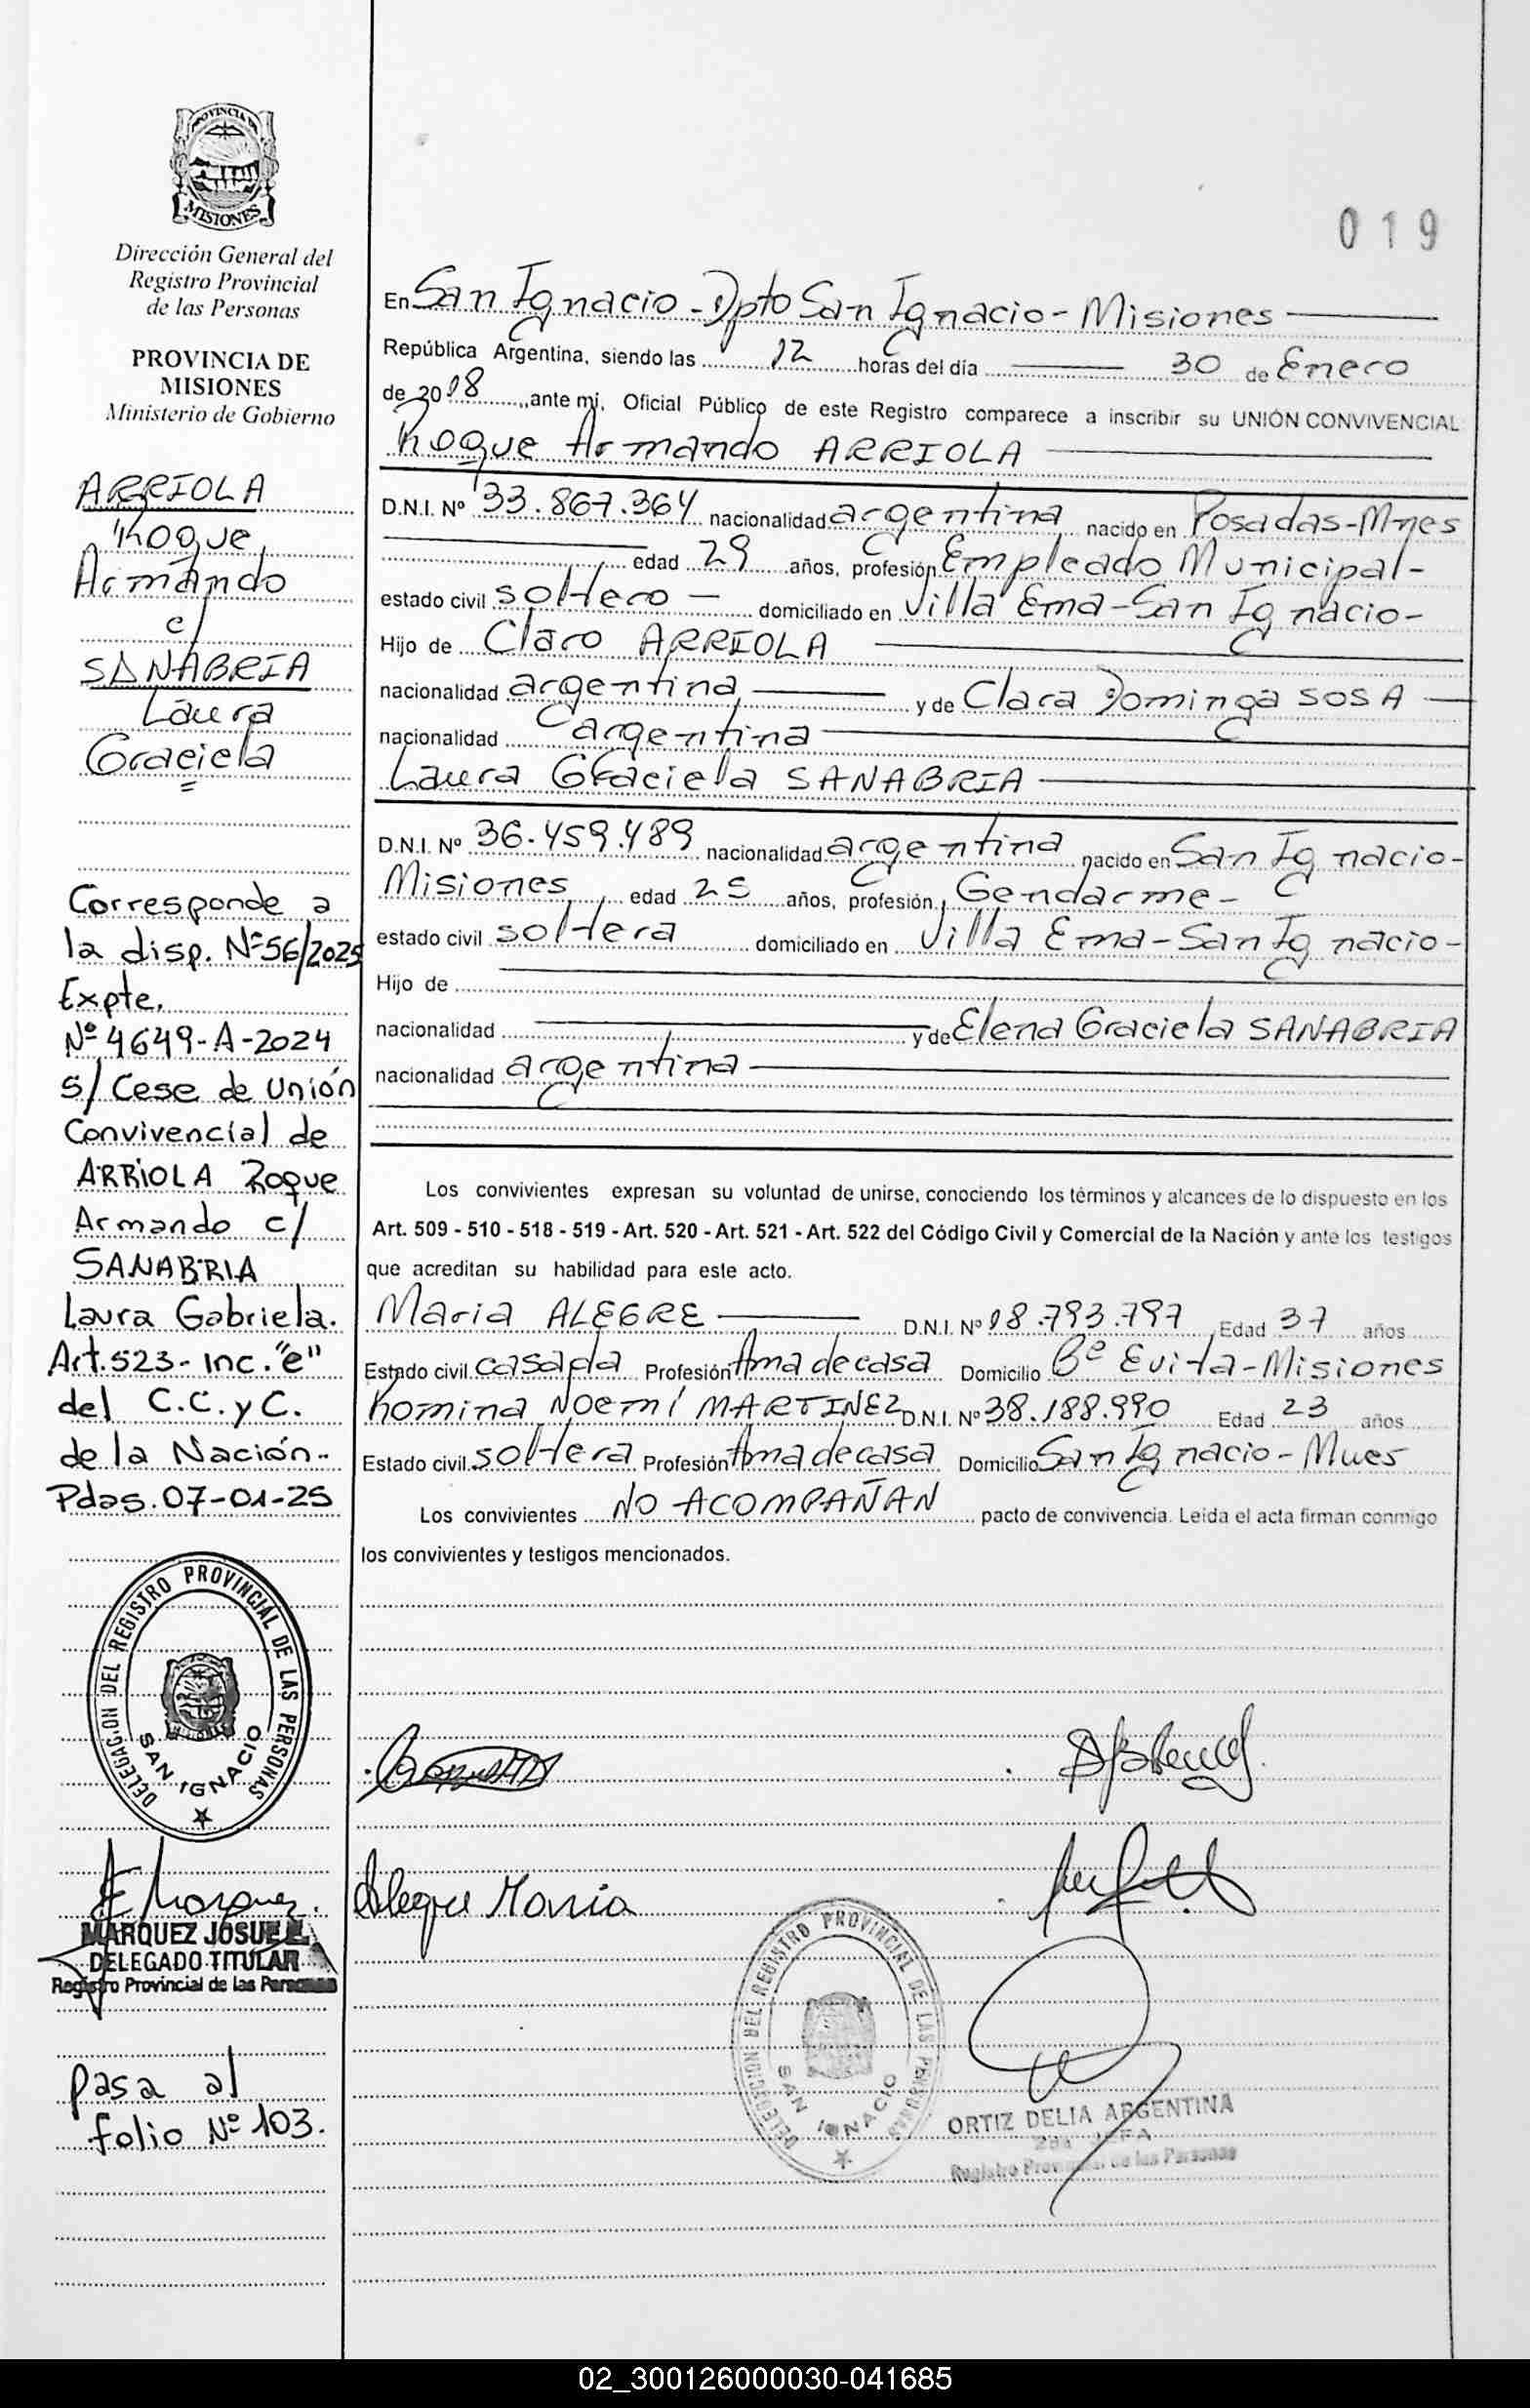 PROVINCIA DE
MISIONES
Dirección General del
Registro Provincial
de las Personas
PROVINCIA DE
MISIONES
Ministerio de Gobierno
ARRIOLA
Roque
Armando
c/
SANABRIA
Laura
Graciela
Corresponde a
la disp. Nº56/2025
Expte.
Nº 4649-A-2024
S/ Cese de Unión
Convivencial de
ARRIOLA Roque
Armando c/
SANABRIA
Laura Gabriela.
Art.523- inc."e"
del C.C. y C.
de la Nación.-
Pdas. 07-01-25
DELEGACION DEL REGISTRO PROVINCIAL DE LAS PERSONAS
SAN IGNACIO
MARQUEZ JOSUE
DELEGADO TITULAR
Registro Provincial de las Personas
Pasa al
folio Nº 103.
019
En San Ignacio - Dpto San Ignacio - Misiones
República Argentina, siendo las 12 horas del día 30 de Enero
de 2018 ante mi, Oficial Público de este Registro comparece a inscribir su UNIÓN CONVIVENCIAL
Roque Armando ARRIOLA
D.N.I. Nº 33.867.364 nacionalidad argentina nacido en Posadas-Mnes
edad 29 años, profesión Empleado Municipal-
estado civil soltero - domiciliado en Villa Ema-San Ignacio-
Hijo de Claro ARRIOLA
nacionalidad argentina y de Clara Dominga SOSA
nacionalidad argentina
Laura Graciela SANABRIA
D.N.I. Nº 36.459.489 nacionalidad argentina nacido en San Ignacio-
Misiones edad 25 años, profesión Gendarme-
estado civil soltera domiciliado en Villa Ema-San Ignacio-
Hijo de
nacionalidad y de Elena Graciela SANABRIA
nacionalidad argentina
Los convivientes expresan su voluntad de unirse, conociendo los términos y alcances de lo dispuesto en los
Art. 509 - 510 - 518 - 519 - Art. 520 - Art. 521 - Art. 522 del Código Civil y Comercial de la Nación y ante los testigos
que acreditan su habilidad para este acto.
Maria ALEGRE D.N.I. Nº 18.793.797 Edad 37 años
Estado civil casada Profesión Ama de casa Domicilio Bº Evita-Misiones
Romina Noemí MARTINEZ D.N.I. Nº 38.188.990 Edad 23 años
Estado civil soltera Profesión Ama de casa Domicilio San Ignacio-Mnes
Los convivientes NO ACOMPAÑAN pacto de convivencia. Leída el acta firman conmigo
los convivientes y testigos mencionados.
Alegre Maria
DELEGACION DEL REGISTRO PROVINCIAL DE LAS PERSONAS
SAN IGNACIO
ORTIZ DELIA ARGENTINA
2da JEFA
Registro Provincial de las Personas
02_300126000030-041685